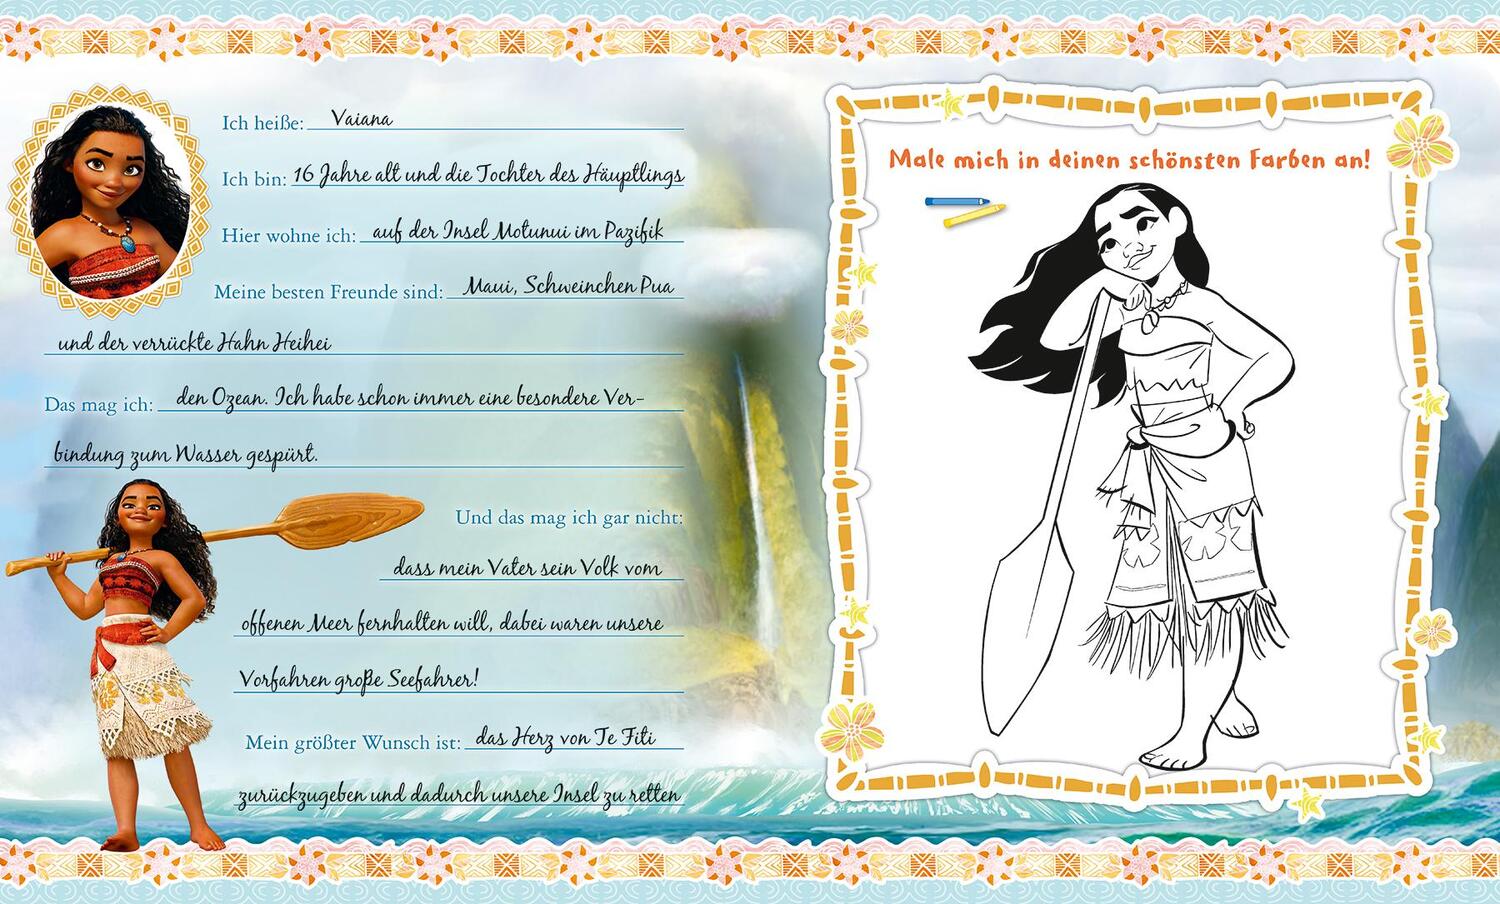 Ich heiße: Vaiana
Ich bin: 16 Jahre alt und die Tochter des Häuptlings
Hier wohne ich: auf der Insel Motunui im Pazifik
Meine besten Freunde sind: Maui, Schweinchen Pua
und der verrückte Hahn Heihei
Das mag ich: den Ozean. Ich habe schon immer eine besondere Ver-
bindung zum Wasser gespürt.
Und das mag ich gar nicht:
dass mein Vater sein Volk vom
offenen Meer fernhalten will, dabei waren unsere
Vorfahren große Seefahrer!
Mein größter Wunsch ist: das Herz von Te Fiti
zurückzugeben und dadurch unsere Insel zu retten
Male mich in deinen schönsten Farben an!